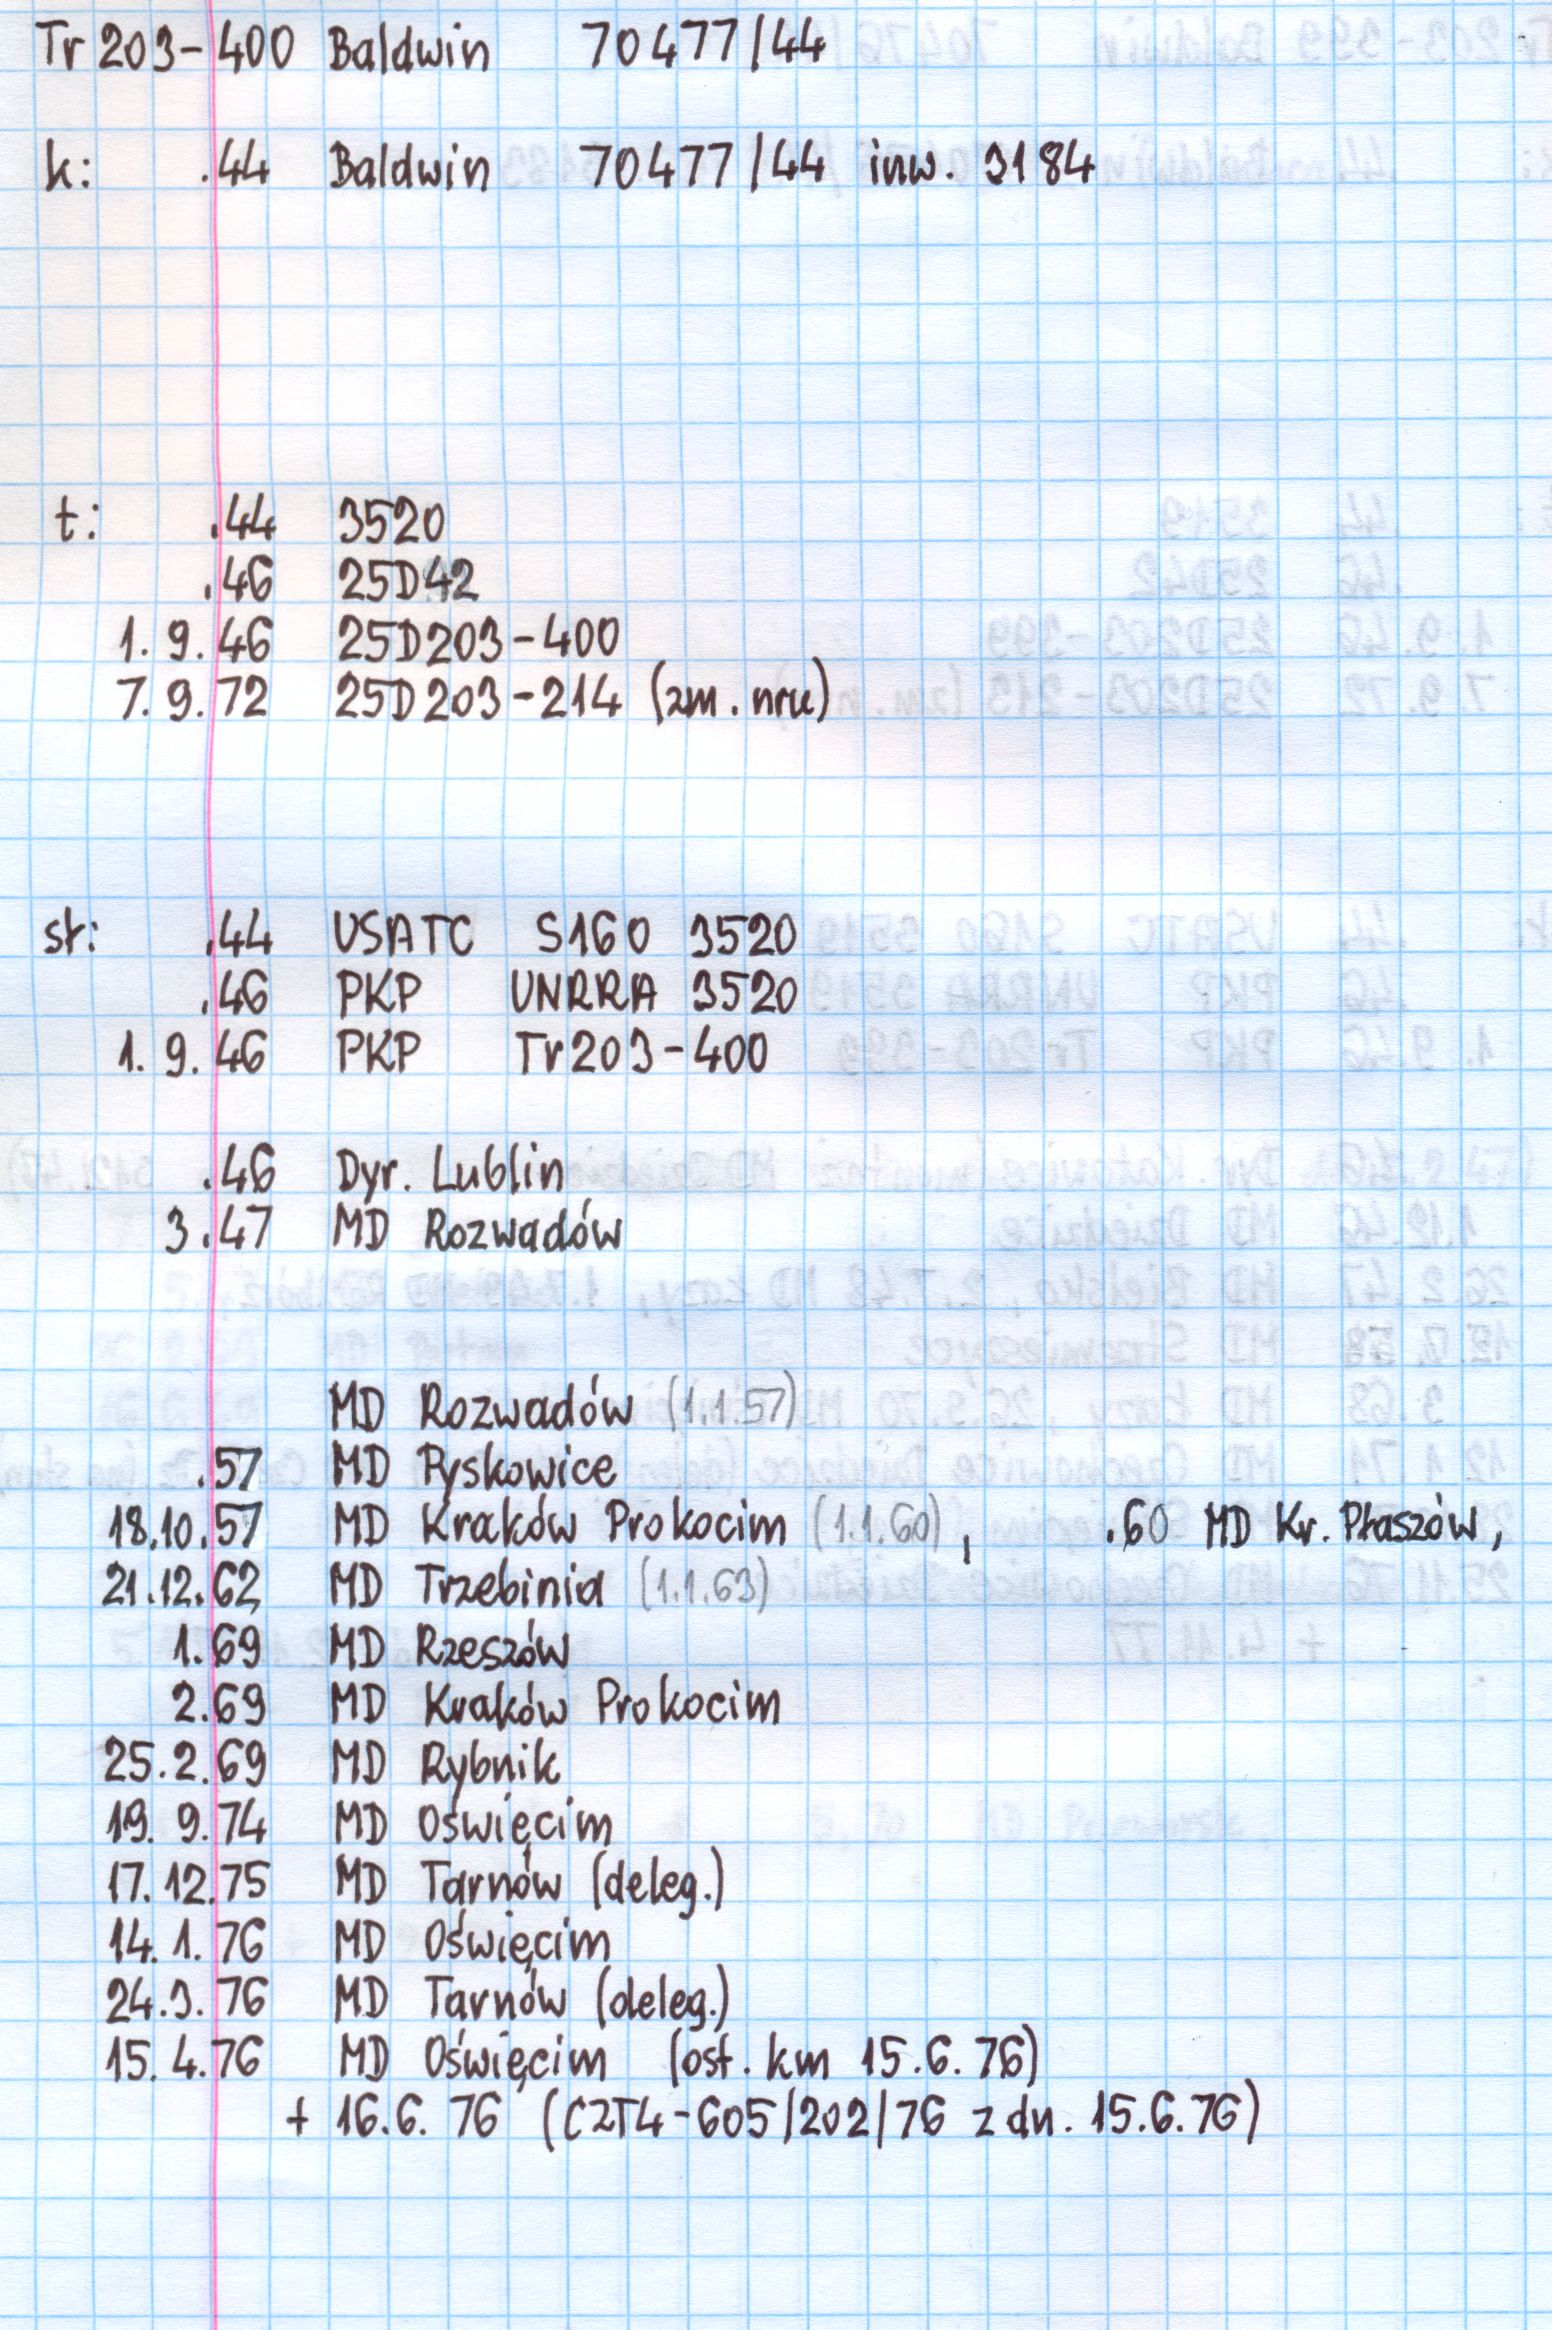 Tr 203-400 Baldwin 70477/44
k: .44 Baldwin 70477/44 inw. 3184
t: .44 3520
.46 25D42
1. 9. 46 25D203-400
7. 9. 72 25D203-214 (zm. nru)
st: .44 USATC S160 3520
.46 PKP UNRRA 3520
1. 9. 46 PKP Tr203-400
.46 Dyr. Lublin
3.47 MD Rozwadów
MD Rozwadów (1.1.57)
.57 MD Pyskowice
18.10.57 MD Kraków Prokocim (1.1.60), .60 MD Kr. Płaszów,
21.12.62 MD Trzebinia (1.1.63)
1.69 MD Rzeszów
2.69 MD Kraków Prokocim
25.2.69 MD Rybnik
19. 9.74 MD Oświęcim
17.12.75 MD Tarnów (deleg.)
14. 1. 76 MD Oświęcim
24.3. 76 MD Tarnów (deleg.)
15. 4.76 MD Oświęcim (ost. km 15.6.76)
+ 16.6. 76 (CZT4-605/202/76 z dn. 15.6.76)